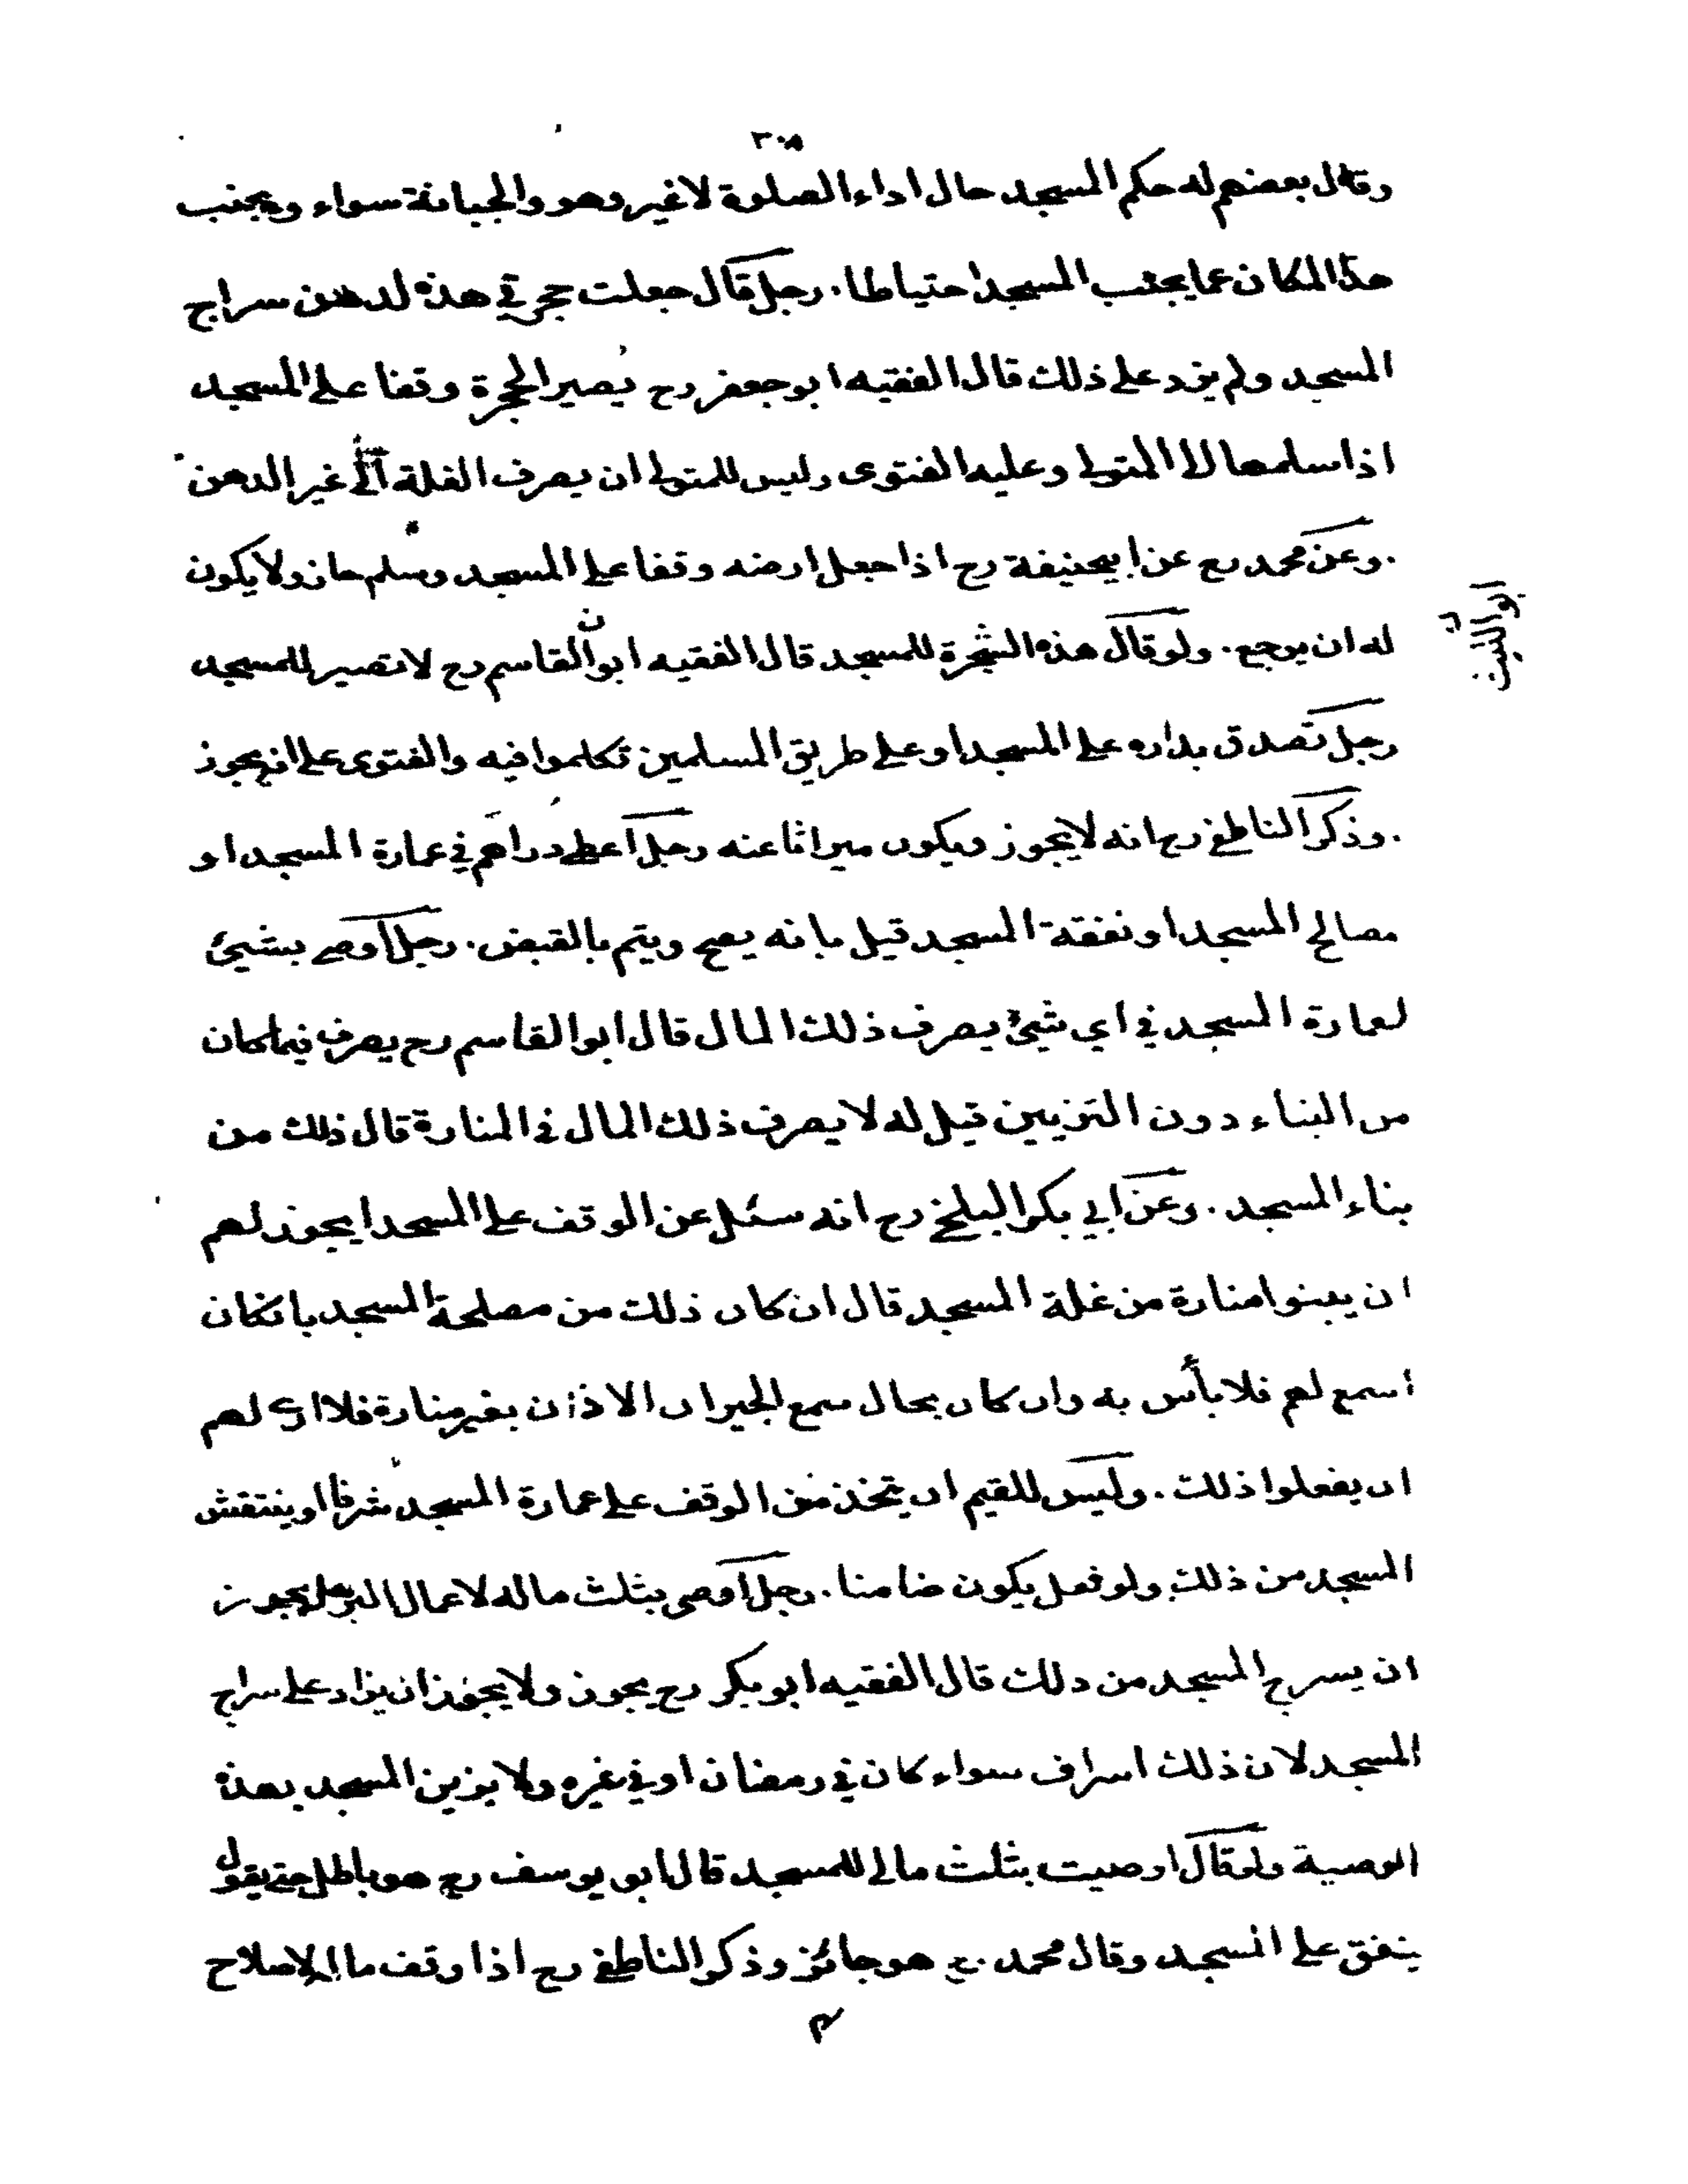 ٣٠٥
وقال بعضهم له حكم المسجد حال اداء الصلوة لا غير وهو والجبانة سواء ويجنب
هذا المكان عما يجنب المسجد احتياطا . رجل قال جعلت حجرتي هذه لدهن سراج
المسجد ولم يزد على ذلك قال الفقيه ابو جعفر رح يصير الحجرة وقفا على المسجد
اذا سلمها الى المتولى وعليه الفتوى وليس للمتولى ان يصرف الغلة الى غير الدهن
. وعن محمد رح عن ابيحنيفة رح اذا جعل ارضه وقفا على المسجد وسلم جاز ولا يكون
له ان يرجع . ولو قال هذه الشجرة للمسجد قال الفقيه ابو القاسم رح لا تصير للمسجد
ابو الليث
ن
رجل تصدق بداره على المسجد او على طريق المسلمين تكلموا فيه والفتوى على انه يجوز
. وذكر الناطفى رح انه لا يجوز ويكون ميراثا عنه رجل اعطى دراهم في عمارة المسجد او
مصالح المسجد او نفقة المسجد قيل بانه يصح ويتم بالقبض . رجل اوصى بشيئ
لعمارة المسجد في اي شيئ يصرف ذلك المال قال ابو القاسم رح يصرف فيما كان
من البناء دون التزيين قيل له لا يصرف ذلك المال في المنارة قال ذلك من
بناء المسجد . وعن ابي بكر البلخى رح انه سئل عن الوقف على المسجد ايجوز لهم
ان يبنوا منارة من غلة المسجد قال ان كان ذلك من مصلحة المسجد بان كان
اسمع لهم فلا بأس به وان كان بحال سمع الجيران الاذان بغير منارة فلا ارى لهم
ان يفعلوا ذلك . وليس للقيم ان يتخذ من الوقف على عمارة المسجد شرفا او ينتقش
المسجد من ذلك ولو فعل يكون ضامنا . رجل اوصى بثلث ماله لاعمال البر هل يجوز
ان يسرج المسجد من ذلك قال الفقيه ابو بكر رح يجوز ولا يجوز ان يزاد على سراج
المسجد لان ذلك اسراف سواء كان في رمضان او في غيره ولا يزين المسجد بهذه
الوصية ولو قال اوصيت بثلث مالى للمسجد قال ابو يوسف رح هو باطل حتى يقول
ينفق على المسجد وقال محمد رح هو جائز وذكر الناطفى رح اذا وقف مالا لاصلاح